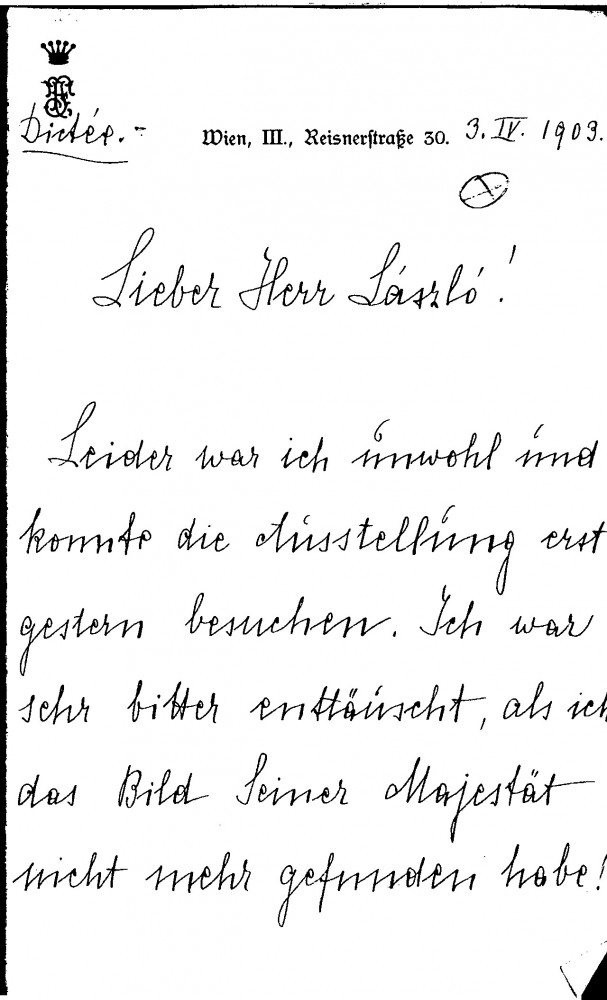 Dictée.-
Wien, III., Reisnerstraße 30. 3. IV. 1903.
Lieber Herr László!
Leider war ich unwohl und
konnte die Ausstellung erst
gestern besuchen. Ich war
sehr bitter enttäuscht, als ich
das Bild Seiner Majestät
nicht mehr gefunden habe!